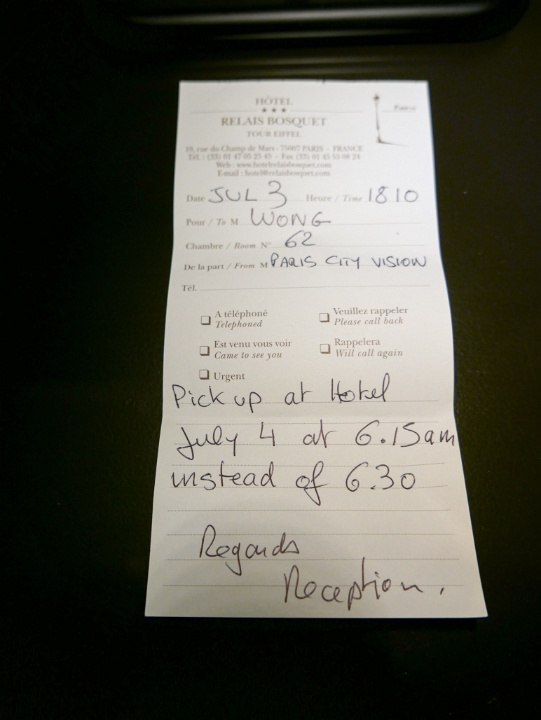 HÔTEL
★★★
RELAIS BOSQUET
TOUR EIFFEL
19, rue du Champ de Mars - 75007 PARIS - FRANCE
Tél. : (33) 01 47 05 25 45 - Fax (33) 01 45 55 08 24
Web : www.hotelrelaisbosquet.com
E-mail : hotel@relaisbosquet.com
Date JUL 3 Heure / Time 18 10
Pour / To M WONG
Chambre / Room N° 62
De la part / From M PARIS CITY VISION
Tél.
A téléphoné
Telephoned
Veuillez rappeler
Please call back
Est venu vous voir
Came to see you
Rappelera
Will call again
Urgent
Pick up at Hotel
July 4 at 6.15am
instead of 6.30
Regards
Reception.